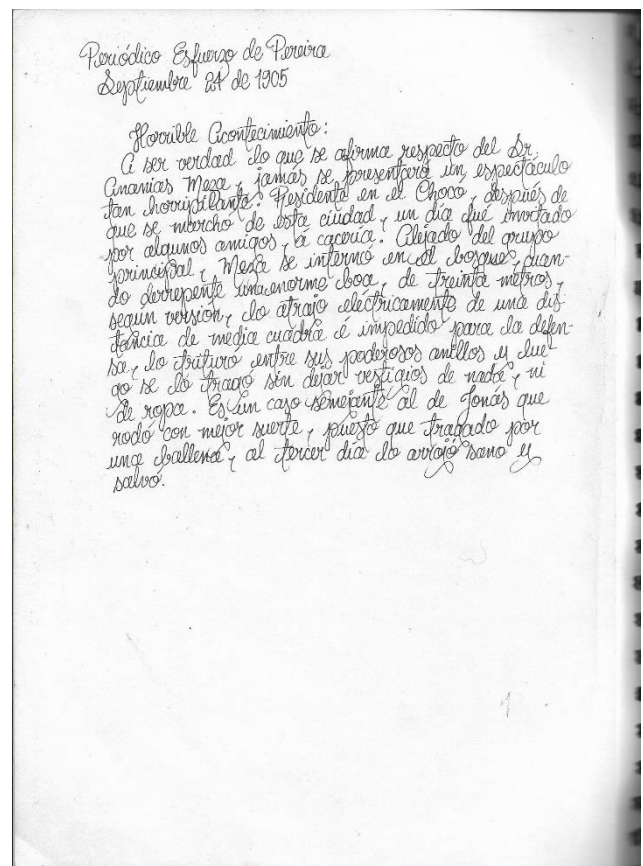 Periódico Esfuerzo de Pereira
Septiembre 24 de 1905
Horrible Acontecimiento:
A ser verdad lo que se afirma respecto del Sr.
Ananias Meza, jamás se presentará un espectáculo
tan horripilante. Residente en el Choco, después de
que se marcho de esta ciudad, un día fué invitado
por algunos amigos, a cacería. Alejado del grupo
principal, Meza se interno en el bosque, cuan-
do derrepente una enorme boa, de treinta metros,
segun versión, lo atrajo eléctricamente de una dis-
tancia de media cuadra é impedido para la defen-
sa, lo trituro entre sus poderosos anillos y lue-
go se lo trago sin dejar vestigios de nada, ni
de ropa. Es un caso semejante al de Jonás que
rodó con mejor suerte, puesto que tragado por
una ballena, al tercer día lo arrojó sano y
salvo.